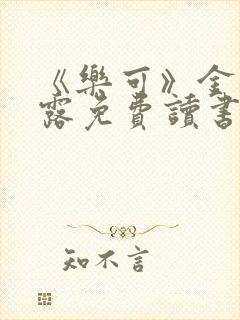 《樂可》金
露免費讀書
知不言